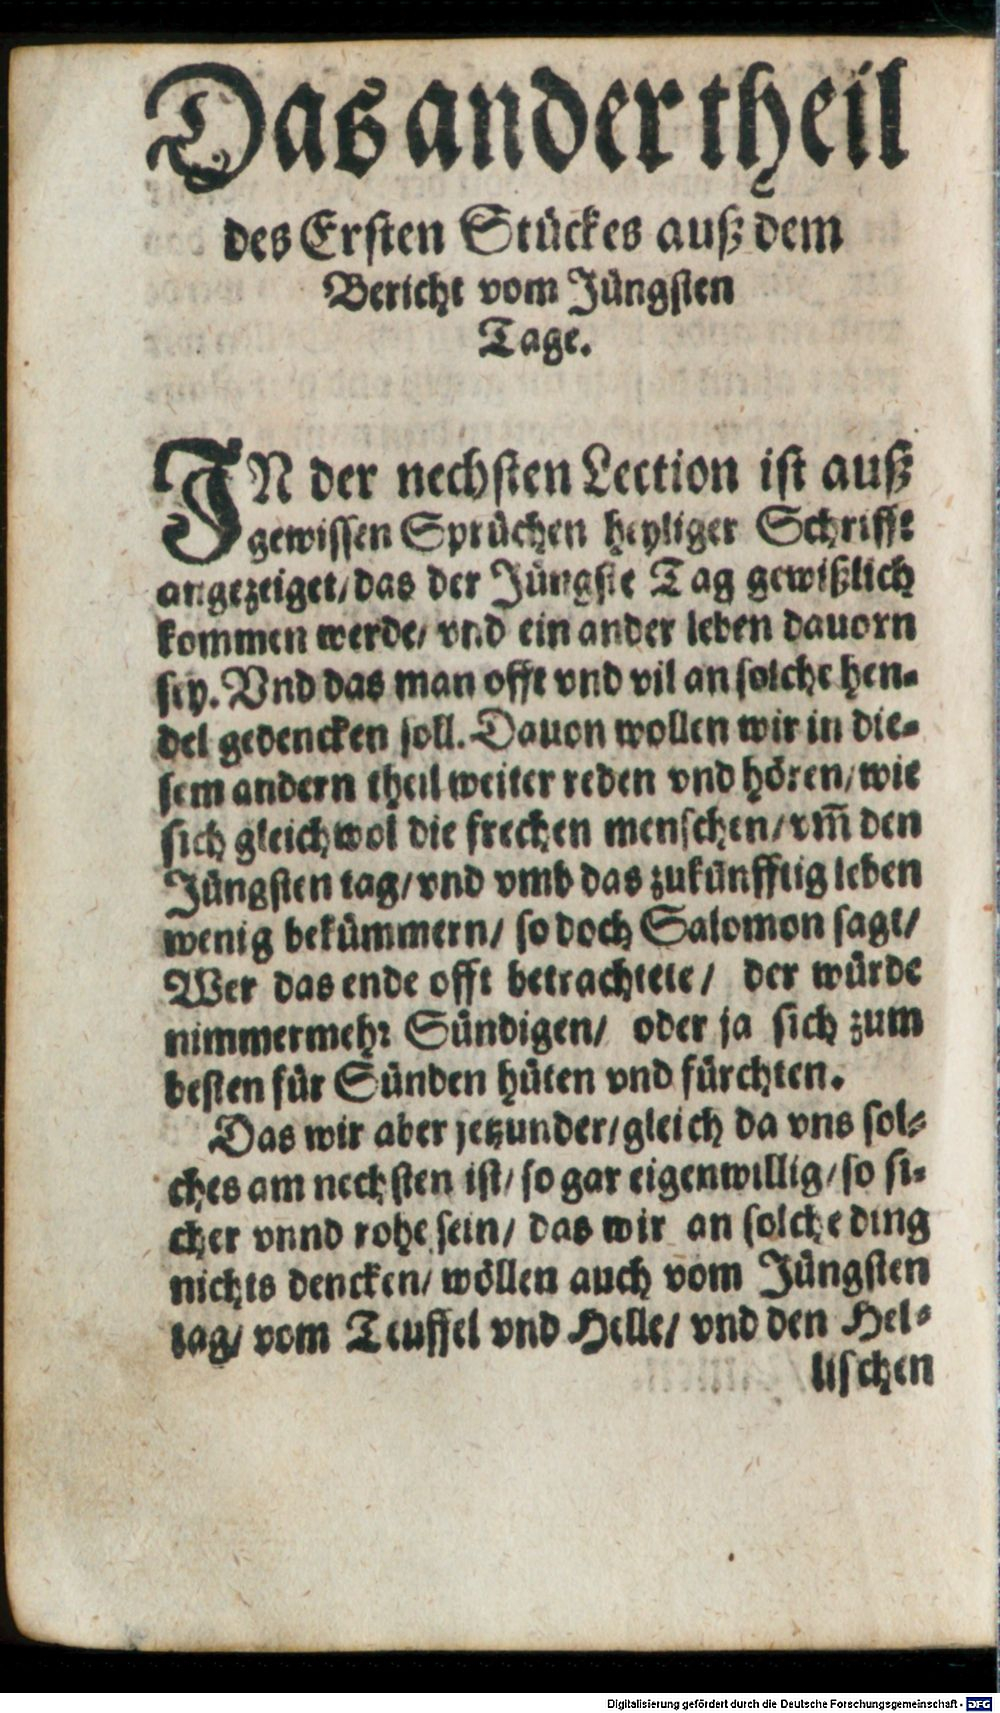 Das ander theil
des Ersten Stückes auß dem
Bericht vom Jüngsten
Tage.
IN der nechsten Lection ist auß
gewissen Sprüchen heyliger Schrifft
angezeiget/ das der Jüngste Tag gewißlich
kommen werde/ vnd ein ander leben dauorn
sey. Vnd das man offt vnd vil an solche hen-
del gedencken soll. Dauon wollen wir in die-
sem andern theil weiter reden vnd hören/ wie
sich gleichwol die frechen menschen/ vm̃ den
Jüngsten tag/ vnd vmb das zukünfftig leben
wenig bekümmern/ so doch Salomon sagt/
Wer das ende offt betrachtete/ der würde
nimmermehr Sündigen/ oder ja sich zum
besten für Sünden hüten vnd fürchten.
Das wir aber jetzunder/ gleich da vns sol-
ches am nechsten ist/ so gar eigenwillig/ so si-
cher vnnd rohe sein/ das wir an solche ding
nichts dencken/ wöllen auch vom Jüngsten
tag/ vom Teuffel vnd Helle/ vnd den Hel-
lischen
Digitalisierung gefördert durch die Deutsche Forschungsgemeinschaft - DFG